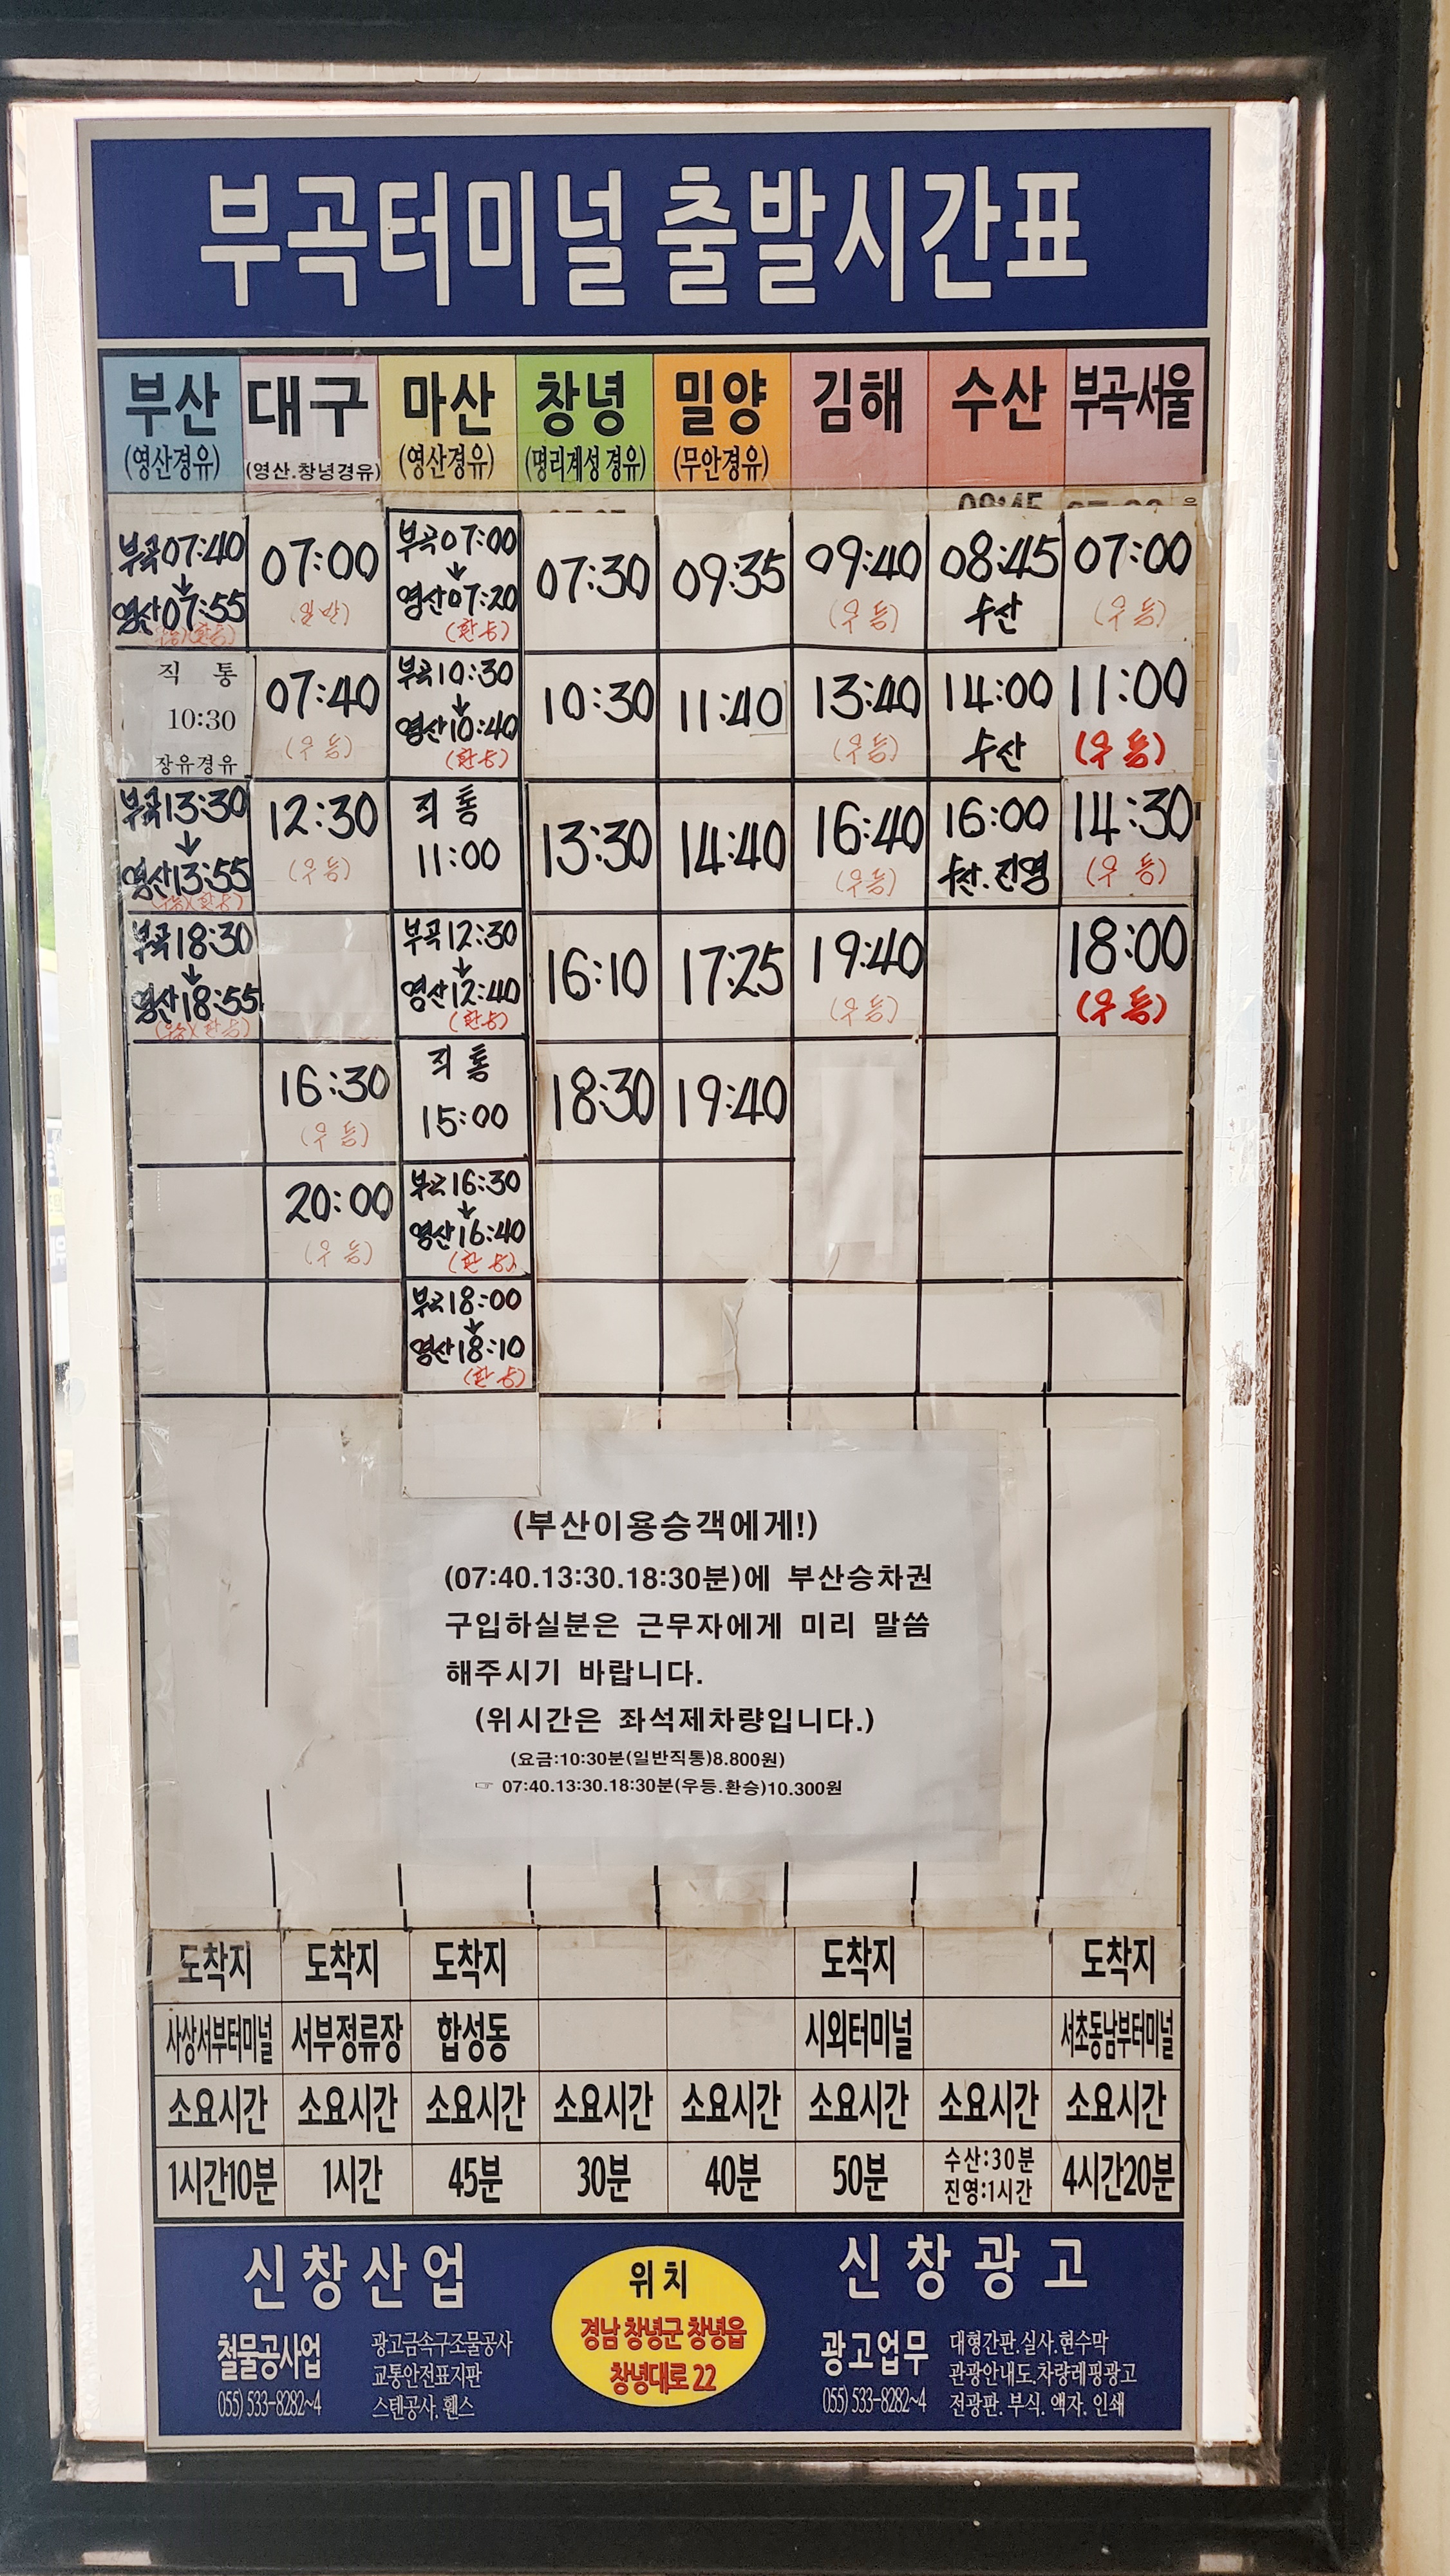 부곡터미널 출발시간표
부산 대구 마산 창녕 밀양 김해 수산 부곡-서울
(영산경유) (영산.창녕경유) (영산경유) (명리계성 경유) (무안경유)
부곡07:40 07:00 부곡07:00 07:30 09:35 09:40 08:45 07:00
↓ ↓
영산07:55 (일반) 영산07:20 (우등) 수산 (우등)
(환승)
직 통 07:40 부곡10:30 10:30 11:40 13:40 14:00 11:00
10:30 ↓
장유경유 (우등) 영산10:40 (우등) 수산 (우등)
(환승)
부곡13:30 12:30 직 통 13:30 14:40 16:40 16:00 14:30
↓
영산13:55 (우등) 11:00 (우등) 수산.진영 (우등)
부곡18:30 부곡12:30 16:10 17:25 19:40 18:00
↓ ↓
영산18:55 영산12:40 (우등) (우등)
(우등)(환승) (환승)
16:30 직 통 18:30 19:40
(우등) 15:00
20:00 부곡16:30
↓
(우등) 영산16:40
(환승)
부곡18:00
↓
영산18:10
(환승)
(부산이용승객에게!)
(07:40.13:30.18:30분)에 부산승차권
구입하실분은 근무자에게 미리 말씀
해주시기 바랍니다.
(위시간은 좌석제차량입니다.)
(요금:10:30분(일반직통)8.800원)
☞ 07:40.13:30.18:30분(우등.환승)10.300원
도착지 도착지 도착지 도착지 도착지
사상서부터미널 서부정류장 합성동 시외터미널 서초동남부터미널
소요시간 소요시간 소요시간 소요시간 소요시간 소요시간 소요시간 소요시간
1시간10분 1시간 45분 30분 40분 50분 수산:30분 4시간20분
진영:1시간
신창산업
철물공사업
055) 533-8282~4
광고금속구조물공사
교통안전표지판
스텐공사. 휀스
위 치
경남 창녕군 창녕읍
창녕대로 22
신창광고
광고업무
055) 533-8282~4
대형간판.실사.현수막
관광안내도.차량레핑광고
전광판. 부식. 액자. 인쇄